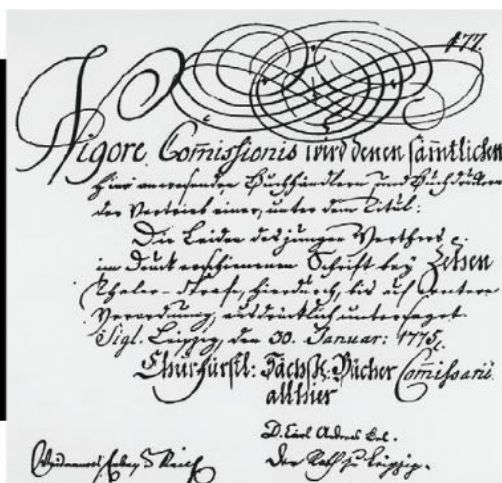 177.
Vigore Com̄issionis wird denen sam̄tlichen
hier anwesenden Buchhändlern und Buchdruckern
der Vertrieb einer, unter dem Titul:
Die Leiden des jungen Werthers
im Druck erschienenen Schrift bey Zehen
Thaler Strafe, hierdurch, bis auf
Verordnung, ausdrücklich untersaget.
Sigl. Leipzig, den 30. Januar: 1775.
Churfürstl: Sächsß. Bücher Com̄issarii
allhier
D. Carl Andreas Bel.
Der Rath zu Leipzig.
Weidmanns Erben & Reich